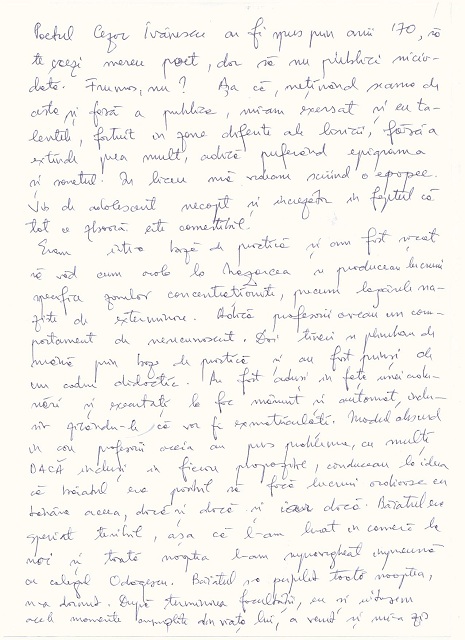 Poetul Cezar Ivănescu ar fi spus prin anii '70, să
te crezi mereu poet, dar să nu publici nicio-
dată. Frumos, nu? Așa că, neținând seama de
asta și fără a publica, mi-am exersat și eu ta-
lentul, fortuit în zone diferite ale lumii, fără a
extinde prea mult, adică preferând epigrama
și sonetul. In liceu mă vedeam scriind o epopee.
Vis de adolescent necopt și increzător in faptul că
tot ce zboară este comestibil.
Eram intr-o bază de practică și am fost șocat
să văd cum acolo la Hogarcea se produceau lucruri
specifice zonelor concentraționiste, precum lagărele na-
ziste de exterminare. Adică profesorii aveau un com-
portament de nerecunoscut. Doi tineri se plimbau de
mână prin baza de practică și au fost prinși de
un cadru didactic. Au fost aduși in fața
și executați la foc mărunt și automat, inclu-
siv că vor fi exmatriculați. Modul absurd
in care profesorii aceia au pus problema, cu multe
DACĂ incluși in fiecare propoziție, conduceau la ideea
că băiatul era posibil să facă lucruri oribile cu
aceea, dacă și dacă și iar dacă. Băiatul era
speriat teribil, așa că l-am luat in cameră la
noi și toată noaptea l-am supravegheat impreună
cu colegul Odogescu. Băiatul s-a toată noaptea,
n-a dormit. După terminarea facultății, eu și uitasem
acele momente cumplite din viața lui, a venit și mi-a zis